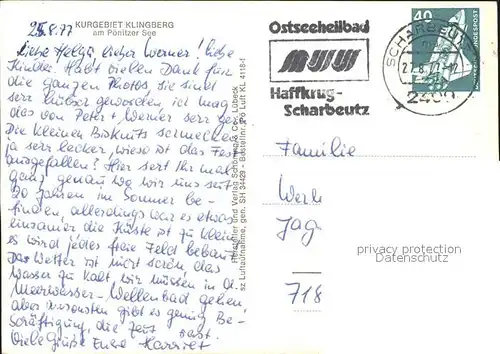 25.8.77
KURGEBIET KLINGBERG
am Pönitzer See
Liebe Helga, lieber Werner! liebe
Kinder. Habt vielen Dank für
die ganzen Photos, sie sind
sehr hübsch geworden ich mag
das von Peter + Werner sehr gern
Die kleinen Biskuits schmecken
ja sehr lecker, wieso ist das Fest
ausgefallen? Hier seht Ihr mal
ganz genau wo wir uns seit
20 Jahren im Sommer be-
finden, allerdings war es etwas
einsamer die Küste ist zu klein
es wird jedes freie Feld bebaut
Das Wetter ist nicht schön das
Wasser zu kalt, wir müssen in d.
Meerwasser-Wellenbad gehen,
aber ansonsten gibt es genug Be-
schäftigung, die
Viele Grüße Eure Harriet
Hersteller und Verlag Schöning & Co., Lübeck
sz Luftaufnahme, gen. SH 34429 - Bestellnr. Z 6 Luft KL 4118-f
Ostseeheilbad
Haffkrug-
Scharbeutz
40
DEUTSCHE BUNDESPOST
SCHARBEUTZ
27.8.77-12
Familie
Wer
Jag
718
privacy protection
Datenschutz